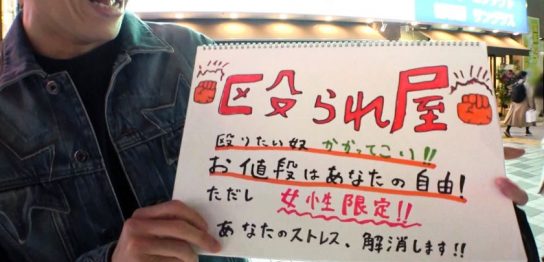 殴られ屋
殴りたい奴 かかってこい!!
お値段はあなたの自由!
ただし 女性限定!!
あなたのストレス、解消します!!